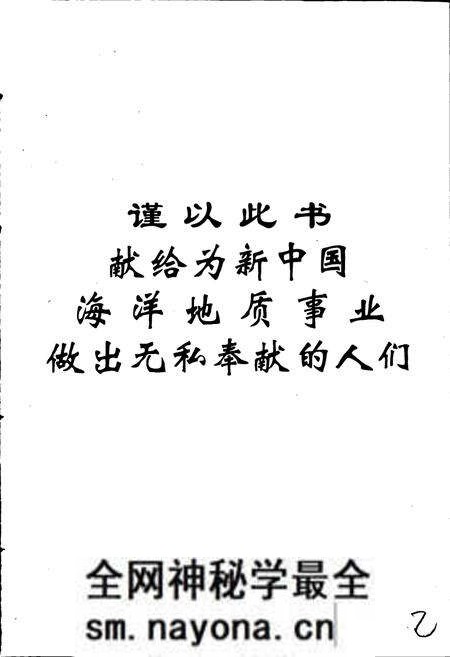 谨以此书
献给为新中国
海洋地质事业
做出无私奉献的人们
全网神秘学最全
sm.nayona.cn